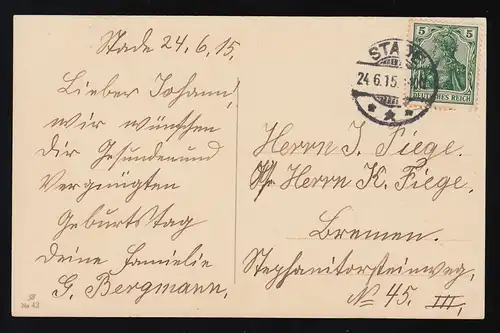 Stade 24.6.15.
Lieber Johann,
wir wünschen
Dir Gesunden und
Vergnügten
Geburtstag
Deine Familie
G. Bergmann,
STADE
24.6.15.
5 5
DEUTSCHES REICH
Herrn J. Fiege.
Herrn K. Fiege.
Bremen.
Stephanitorsteinweg,
No 45. III,
No 43